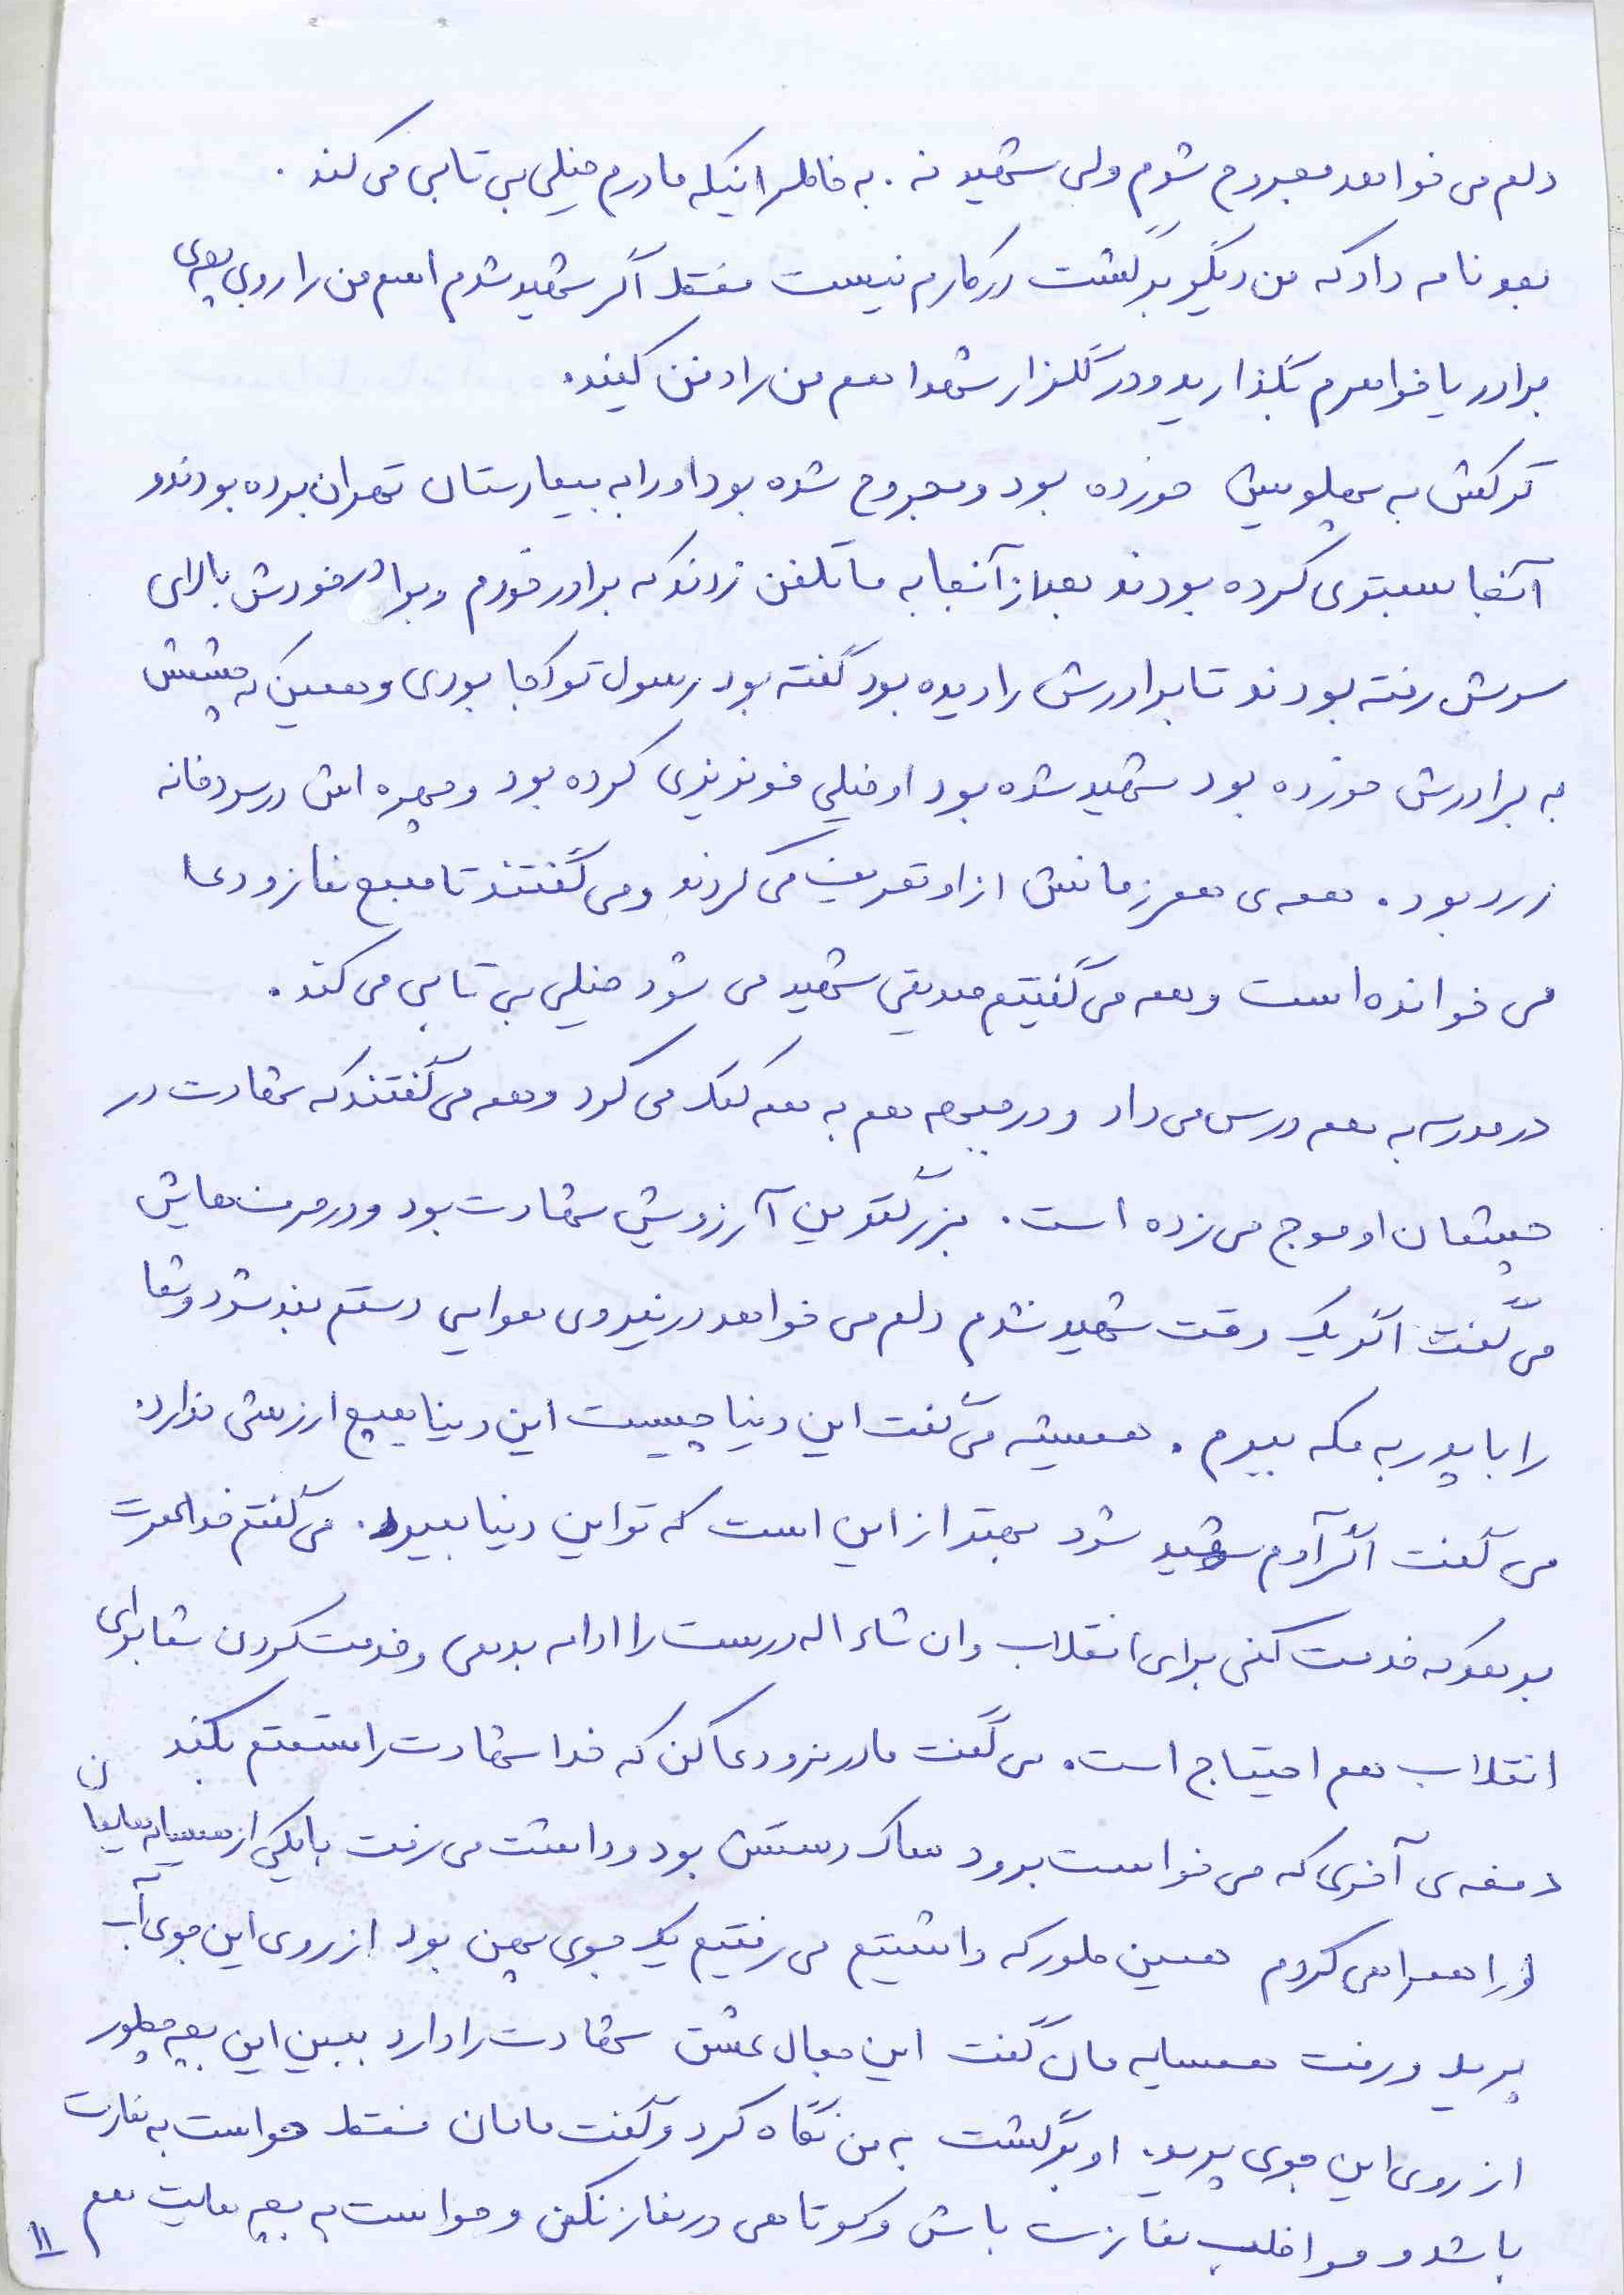 دلم می خواهد مجروح شوم ولی شهید نه. به خاطر اینکه مادرم خیلی بی تابی می کند.
بعد نامه داد که من دیگر برگشت در کارم نیست فقط اگر شهید شدم اسم من را روی بچه ی
برادر یا خواهرم بگذارید و در گلزار شهدا هم من را دفن کنید.
ترکش به پهلویش خورده بود و مجروح شده بود او را به بیمارستان تهران برده بودند و
آنجا بستری کرده بودند بعد از آنجا به ما تلفن زدند که برادر خودم و برادر خودش بالای
سرش رفته بودند تا برادرش را دیده بود گفته بود رسول تو کجا بودی و همین که چشمش
به برادرش خورده بود شهید شده بود او خیلی خونریزی کرده بود و چهره اش در سردخانه
زرد بود. همه ی همرزمانش از او تعریف می کردند و می گفتند تا صبح نماز و دعا
می خوانده است و همه می گفتیم صدیقی شهید می شود خیلی بی تابی می کند.
در مدرسه به همه درس می داد و در جبهه هم به همه کمک می کرد و همه می گفتند که شهادت در
چشمان او موج می زده است. بزرگترین آرزویش شهادت بود و در حرف هایش
می گفت اگر یک وقت شهید نشدم دلم می خواهد در نیروی هوایی دستم بند شود و شما
را با پدر به مکه ببرم. همیشه می گفت این دنیا چیست این دنیا هیچ ارزشی ندارد.
می گفت اگر آدم شهید شود بهتر از این است که تو این دنیا بمیرد. می گفتم خدا عمرت
بدهد که خدمت کنی برای انقلاب و ان شاء اله درست را ادامه بدهی و خدمت کردن شما برای
انقلاب هم احتیاج است. می گفت مادر نرو دعا کن که خدا شهادت را قسمتم بکند
دفعه ی آخری که می خواست برود ساک دستش بود و داشت می رفت با یکی از همسایه هایمان
او را همراهی کردم همین طور که داشتیم می رفتیم یک جوی پهن بود از روی این جوی آب
پرید و رفت همسایه مان گفت این جمال عشق شهادت را دارد ببین این بچه چطور
از روی این جوی پرید. او برگشت به من نگاه کرد و گفت مامان فقط حواست به نمازت
باشد و مواظب نمازت باش و کوتاهی در نماز نکن و حواست به بچه هایت هم
۱۱